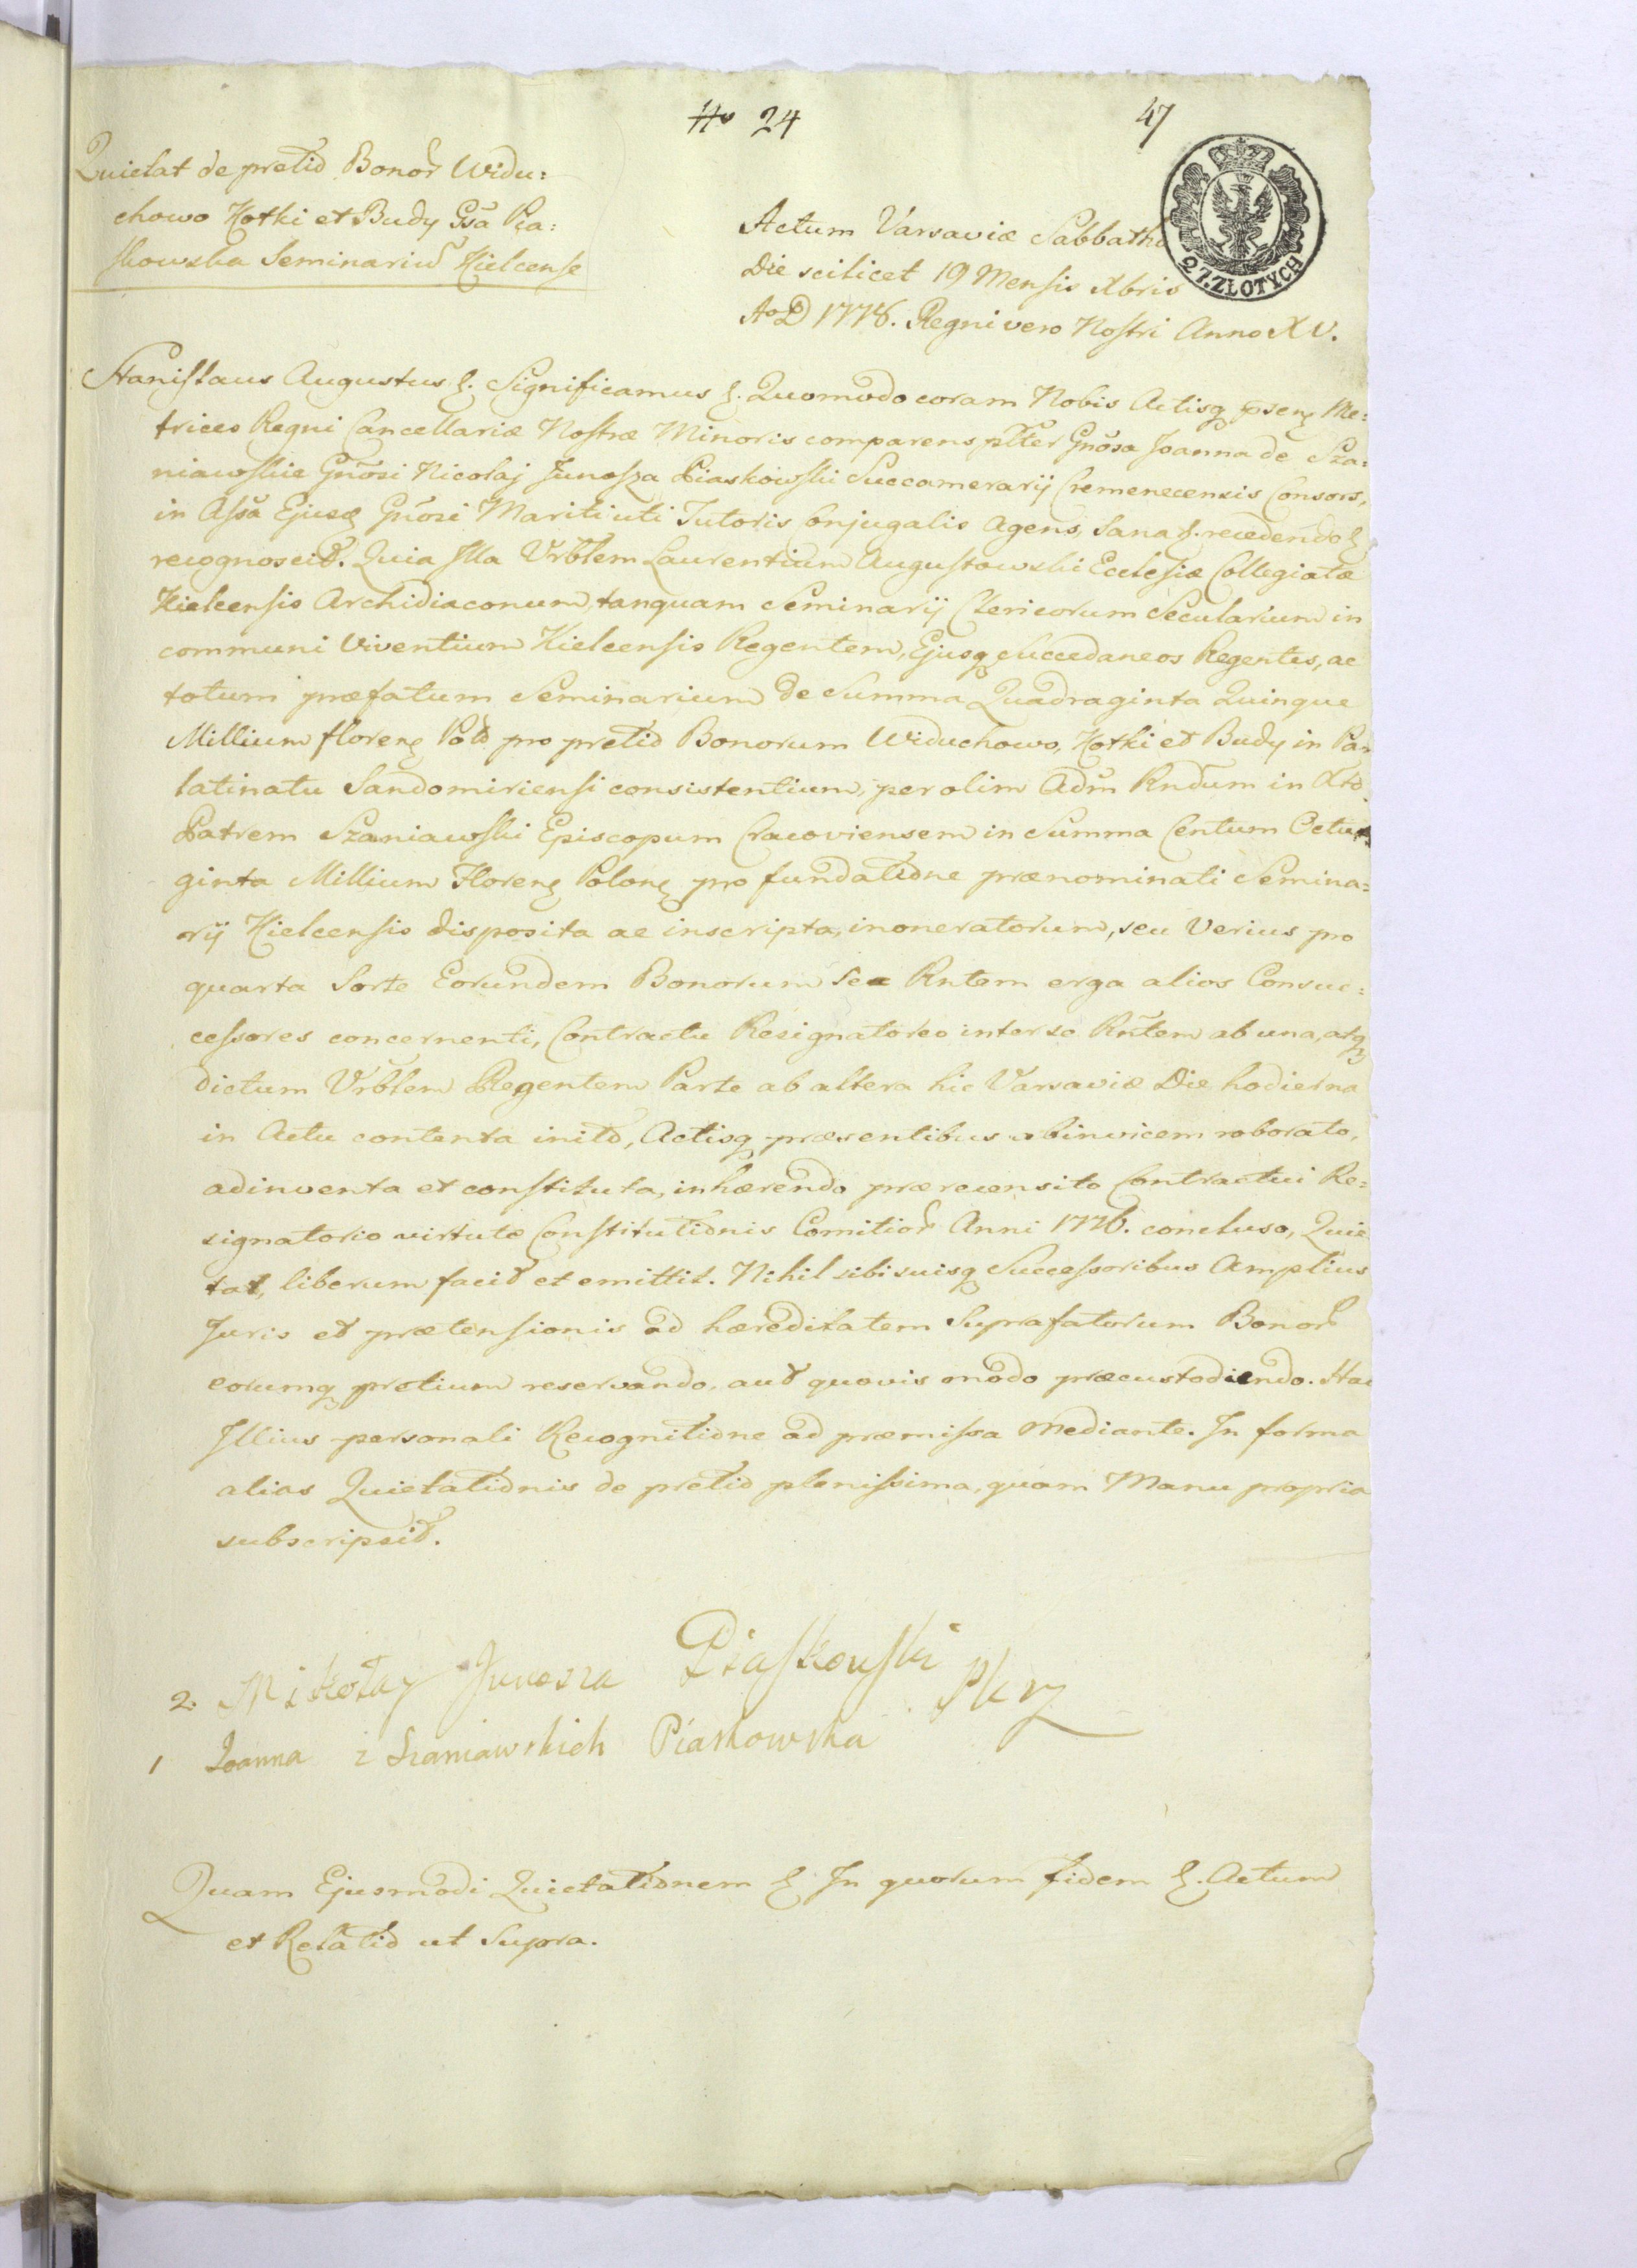 No 24
47
Quietat de pretio Bonor Widu:
chowo Kotki et Budy Gsa Pia:
skowska Seminariu Kielcense
27. ZŁOTYCH
Actum Varsaviæ Sabbatho
Die scilicet 19 Mensis Xbris
Ao D 1778. Regni vero Nostri Anno XV.
Stanislaus Augustus &. Significamus &. Quomodo coram Nobis Actisq psen Me:
trices Regni Cancellariæ Nostræ Minoris comparens plter Gnosa Joanna de Sza:
niawskie Gnosi Nicolaj Junosza Piaskowski Succamerarij Cremenecensis Consors,
in Assa Ejusq Gnosi Mariti uti Tutoris Conjugalis Agens, Sana &. recedendo &
recognoscit. Quia Illa Vrblem Laurentium Augustowski Ecclesiæ Collegiatæ
Kielcensis Archidiaconum, tanquam Seminarij Clericorum Secularium in
communi Viventium Kielcensis Regentem, Ejusq Succedaneos Regentes, ac
totum præfatum Seminarium de Summa Quadraginta Quinque
Millium floren Pol pro pretio Bonorum Widuchowo, Kotki et Budy in Pa-
latinatu Sandomiriensi consistentium, per olim Adm Rndum in Xto
Patrem Szaniawski Episcopum Cracoviensem in Summa Centum Octua
ginta Millium Floren Polon pro fundatione prænominati Semina:
rij Kielcensis disposita ac inscripta, inoneratorum, seu Verius pro
quarta Sorte Eorundem Bonorum Se Rntem erga alios Consuc:
cessores concernenti, Contractu Resignatoreo inter se Rntem ab una, atq
dictum Vrblem Regentem Parte ab altera hic Varsaviæ Die hodierna
in Actu contenta inito, Actisq præsentibus abinvicem roborato,
adinventa et constituta, inhærendo prærecensito Contractui Re:
signatorio virtute Constitutionis Comitior Anni 1776. concluso, Quie
tat, liberum facit et emittit. Nihil sibi suisq Successoribus Amplius
Juris et prætensionis ad hæreditatem Suprafatorum Bonor
eorumq pretium reservando, aut quovis modo præcustodiendo. Hac
Illius personali Recognitione ad præmissa Mediante. In forma
alias Quietationis de pretio plenissima, quam Manu propria
subscripsit.
2. Mikołay Junosza Piaskowski
1 Joanna z Szaniawskich Piaskowska
Quam Ejusmodi Quietationem & In quorum fidem &. Actum
et Relatio ut Supra.